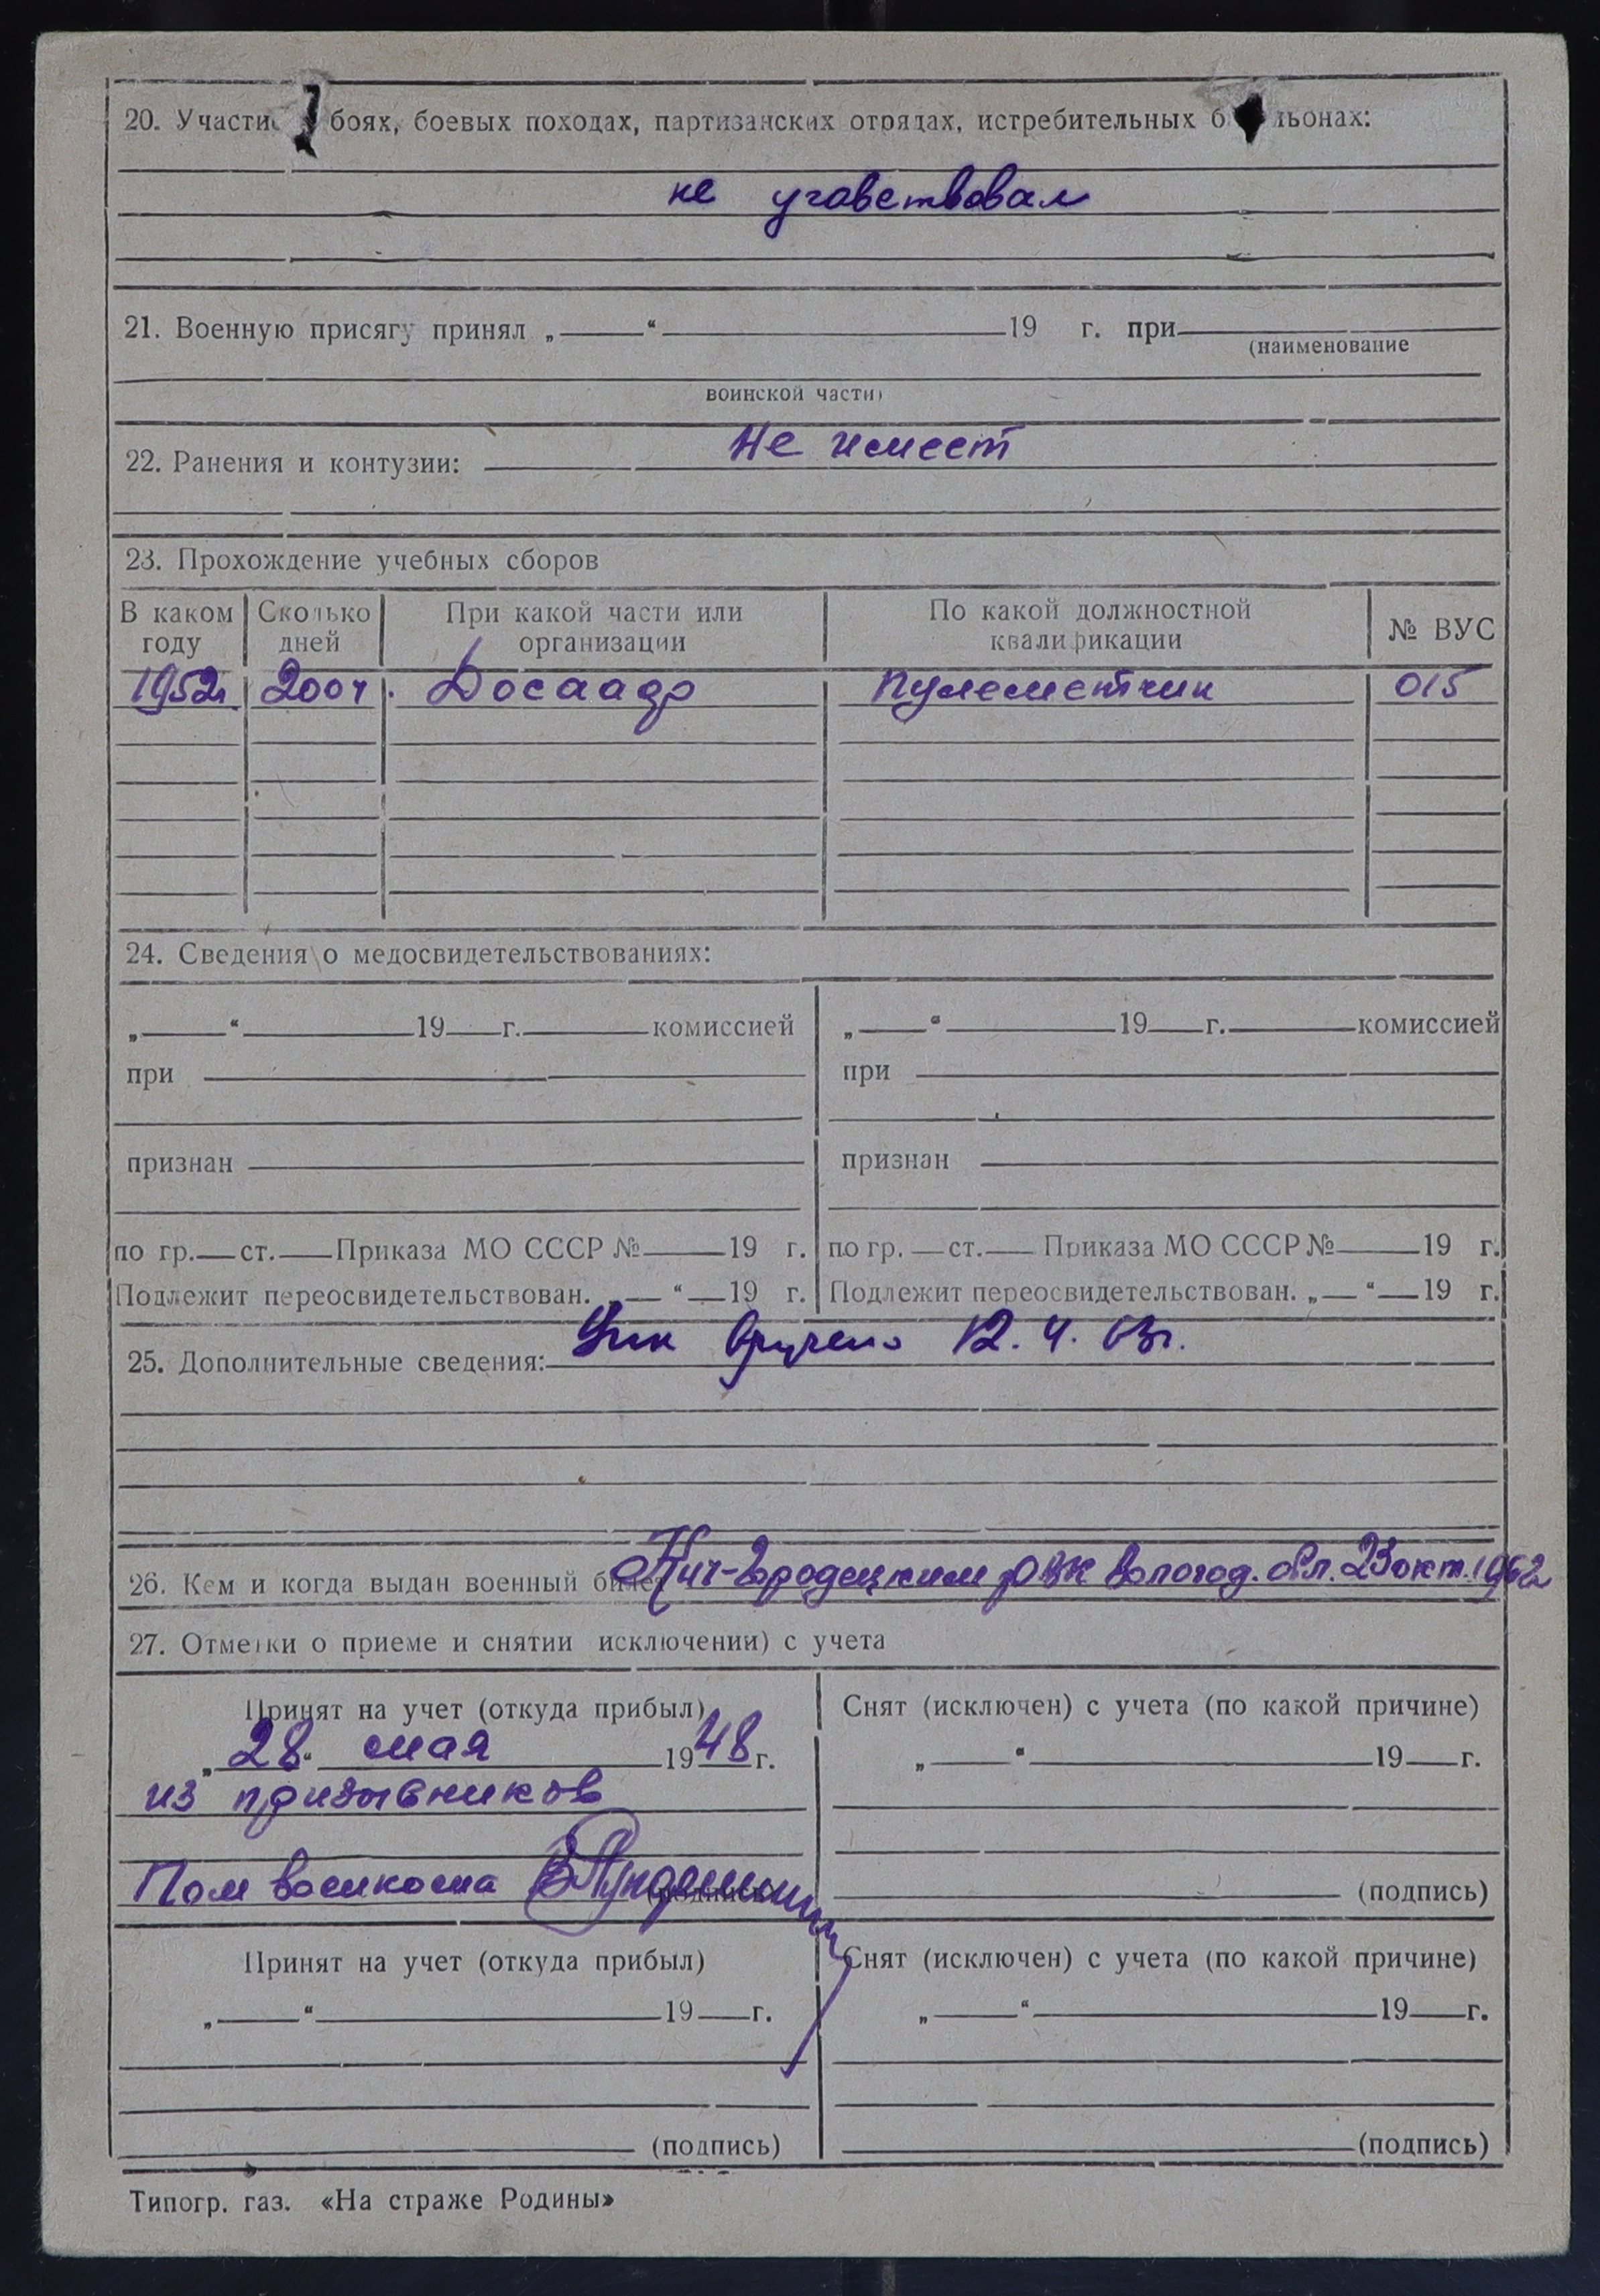 20. Участие боях, боевых походах, партизанских отрядах, истребительных б льонах:
не участвовал
21. Военную присягу принял „ “ 19 г. при
(наименование
воинской части)
Не имеет
22. Ранения и контузии:
23. Прохождение учебных сборов
В каком году Сколько дней При какой части или организации По какой должностной квалификации № ВУС
1952г. 200ч. Досааф пулеметчик 015
24. Сведения о медосвидетельствованиях:
„ “ 19 г. комиссией „ “ 19 г. комиссией
при при
признан признан
по гр. ст. Приказа МО СССР № 19 г. по гр. ст. Приказа МО СССР № 19 г.
Подлежит переосвидетельствован. „ “ 19 г. Подлежит переосвидетельствован. „ “ 19 г.
25. Дополнительные сведения: вручено 12.4.63г.
26. Кем и когда выдан военный билет Кич-Городецким РВК Вологод. обл. 23 окт. 1962
27. Отметки о приеме и снятии исключении) с учета
Принят на учет (откуда прибыл) Снят (исключен) с учета (по какой причине)
„28“ мая 1948 г. „ “ 19 г.
из призывников
Пом военкома (подпись) (подпись)
Принят на учет (откуда прибыл) Снят (исключен) с учета (по какой причине)
„ “ 19 г. „ “ 19 г.
(подпись) (подпись)
Типогр. газ. «На страже Родины»